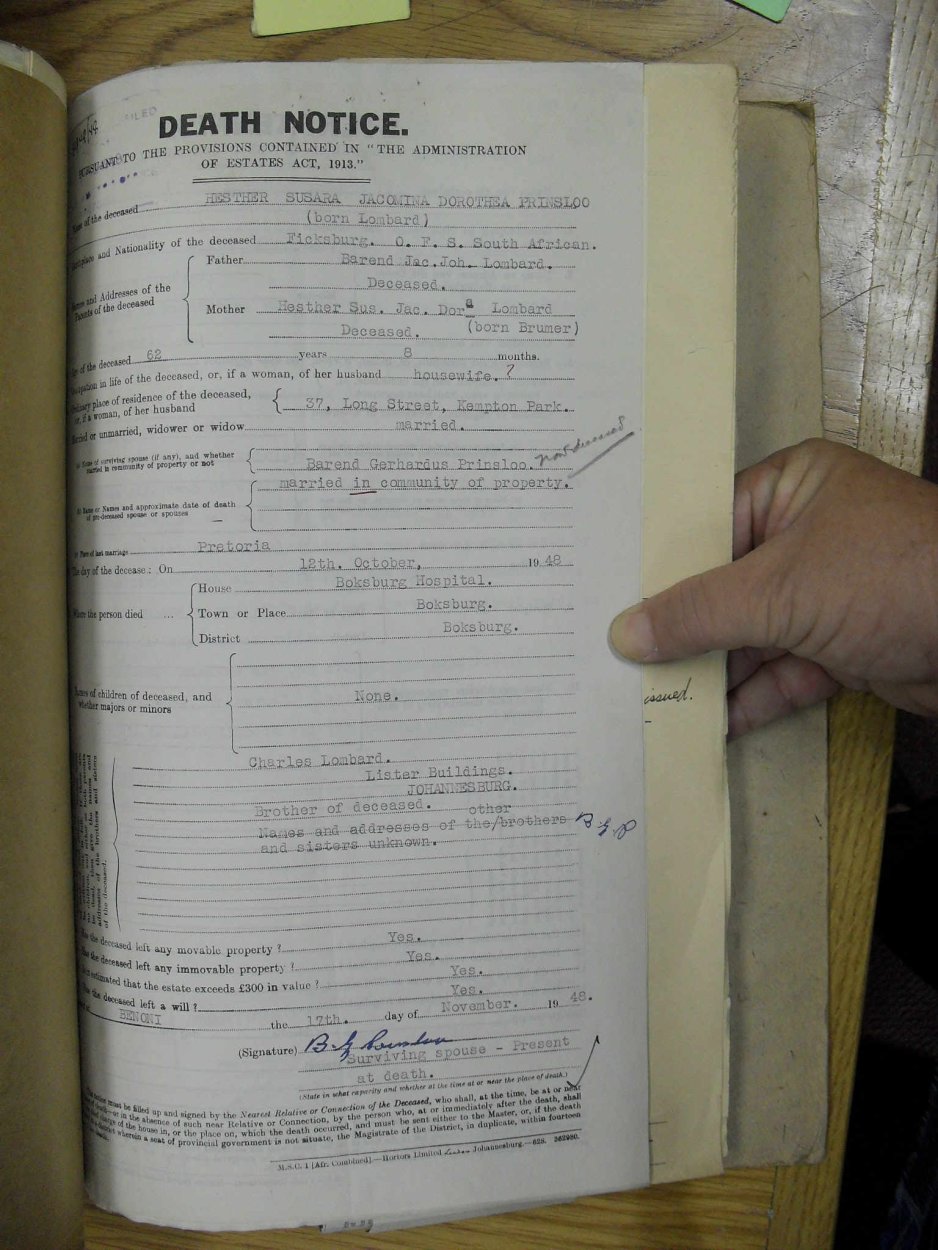 FILED
DEATH NOTICE.
PURSUANT TO THE PROVISIONS CONTAINED IN "THE ADMINISTRATION
OF ESTATES ACT, 1913."
of the deceased HESTHER SUSARA JACOMINA DOROTHEA PRINSLOO
(born Lombard)
and Nationality of the deceased Ficksburg. O. F. S. South African.
Father Barend Jac. Joh. Lombard.
Deceased.
and Addresses of the
of the deceased
Mother Hesther Sus. Jac. Dora Lombard
Deceased. (born Brumer)
of the deceased 62 years 8 months.
in life of the deceased, or, if a woman, of her husband housewife. ?
place of residence of the deceased,
or, if a woman, of her husband 37, Long Street, Kempton Park.
or unmarried, widower or widow married.
Name of surviving spouse (if any), and whether
married in community of property or not Barend Gerhardus Prinsloo.
married in community of property.
Name or Names and approximate date of death
of pre-deceased spouse or spouses
Place of last marriage Pretoria
The day of the decease: On 12th. October, 1948
House Boksburg Hospital.
Where the person died ... Town or Place Boksburg.
District Boksburg.
of children of deceased, and
whether majors or minors None.
Charles Lombard.
Lister Buildings.
JOHANNESBURG.
Brother of deceased. other
Names and addresses of the/brothers B G P
and sisters unknown.
the deceased left any movable property? Yes.
the deceased left any immovable property? Yes.
estimated that the estate exceeds £300 in value? Yes.
the deceased left a will? Yes.
BENONI the 17th. day of November. 1948.
(Signature) B G Prinsloo
Surviving spouse - Present
at death.
(State in what capacity and whether at the time at or near the place of death.)
must be filled up and signed by the Nearest Relative or Connection of the Deceased, who shall, at the time, be at or near
in the absence of such near Relative or Connection, by the person who, at or immediately after the death, shall
charge of the house in, or the place on, which the death occurred, and must be sent either to the Master, or, if the death
wherein a seat of provincial government is not situate, the Magistrate of the District, in duplicate, within fourteen
M.S.C. 1 [Afr. Combined].—Hortors Limited Johannesburg.—628. 362980.
issued.